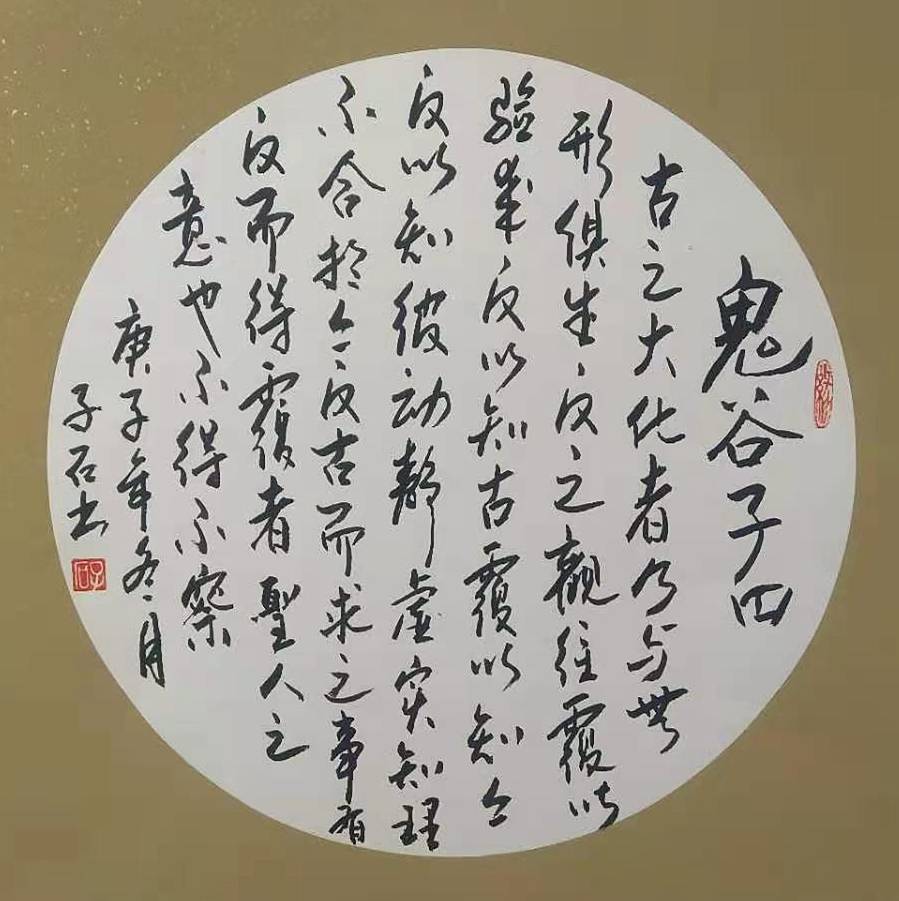 鬼谷子四
古之大化者乃与無
形俱生反之觀往覆以
验來反以知古覆以知今
反以知彼动静虚实知理
不合於今反古而求之事有
反而得覆者聖人之
意也不得不察
庚子年冬月
子石书
子石